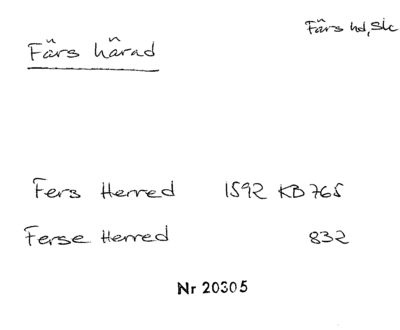 Färs hd, Sk
Färs härad
Fers Herred 1592 KB 765
Ferse Herred 832
Nr 20305